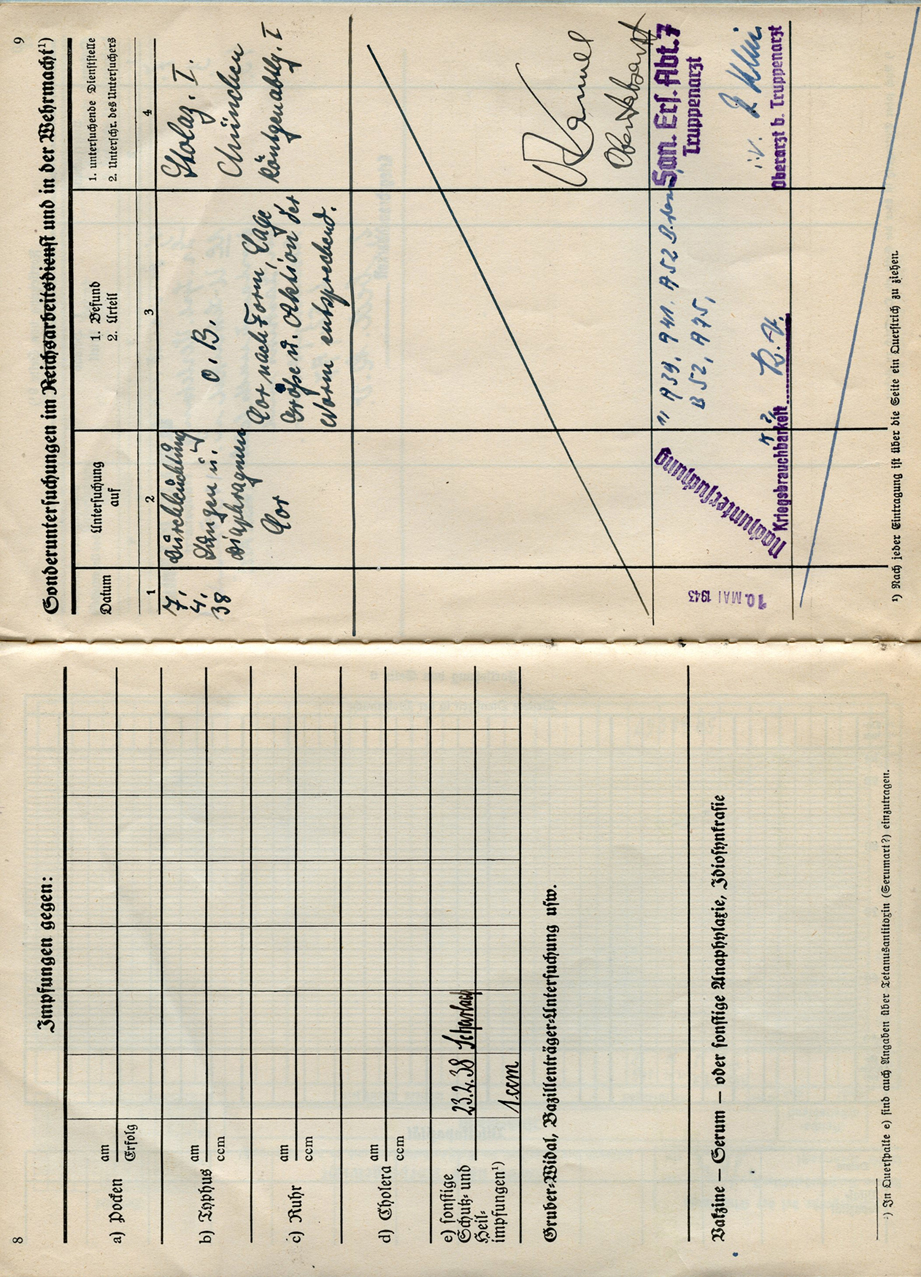 8
Impfungen gegen:
a) Pocken
am
Erfolg
b) Typhus
am
ccm
c) Ruhr
am
ccm
d) Cholera
am
ccm
e) sonstige
Schutz- und
Heil-
impfungen¹)
23.2.38 Scharlach
1 ccm
Gruber-Widal, Bazillenträger-Untersuchung usw.
Vakzine – Serum – oder sonstige Anaphylaxie, Idiosynkrasie
¹) In Querspalte e) sind auch Angaben über Tetanusantitoxin (Serumart?) einzutragen.
9
Sonderuntersuchungen im Reichsarbeitsdienst und in der Wehrmacht¹)
Datum
Untersuchung
auf
1. Befund
2. Urteil
1. untersuchende Dienststelle
2. Unterschr. des Untersuchers
1
2
3
4
7.
4.
38
Durchleuchtung
Lungen u.
Diaphragmen
o. B.
Cor
Cor nach Form, Lage,
Größe u. Aktion der
Norm entsprechend.
Stolaz. I.
München
Röntgenabtlg. I
Oberstabsarzt
10. MAI 1943
Nachuntersuchung
1) A39, 941. A52
B 52, A75,
San. Ers. Abt. 7
Truppenarzt
Kriegsbrauchbarkeit
i.V.
Oberarzt b. Truppenarzt
¹) Nach jeder Eintragung ist über die Seite ein Querstrich zu ziehen.